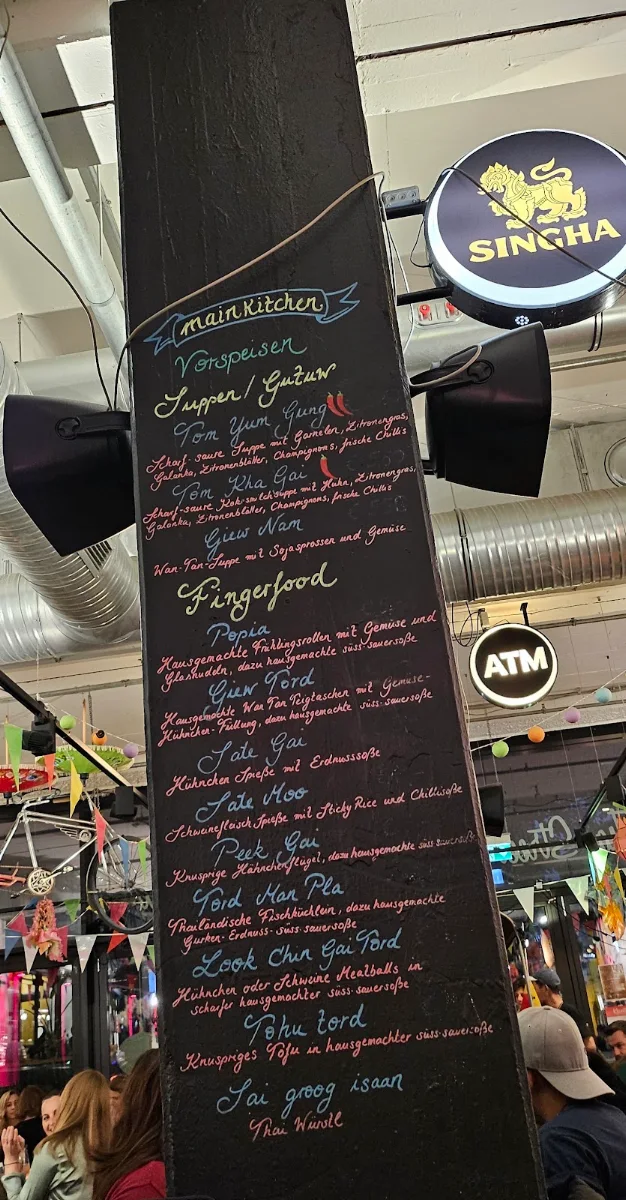 SINGHA
main Kitchen
Vorspeisen
Suppen/
Tom Yum Gung
Scharf-saure Suppe mit Garnelen, Zitronengras,
Galanka, Zitronenblätter, Champignons, frische Chillis
Tom Kha Gai
Scharf-saure mit Huhn, Zitronengras,
Galanka, Zitronenblätter, Champignons, frische Chillis
Giew Nam
Wan-Tan-Suppe mit Sojasprossen und Gemüse
Fingerfood
Popia
Hausgemachte Frühlingsrollen mit Gemüse und
Glasnudeln, dazu hausgemachte süss-sauersoße
Giew Tord
Hausgemachte Wan Tan Teigtaschen mit Gemüse-
Hühnchen-Füllung, dazu hausgemachte süss-sauersoße
ATM
Sate Gai
Hühnchen Spieße mit Erdnusssoße
Sate Moo
Schweinefleisch Spieße mit Sticky Rice und Chillisoße
Peek Gai
Knusprige Hähnchenflügel, dazu hausgemachte süss-sauersoße
Tord Man Pla
Thailändische Fischküchlein, dazu hausgemachte
Gurken-Erdnuss-süss-sauersoße
Look Chin Gai Tord
Hühnchen oder Schweine Meatballs in
scharfer hausgemachter süss-sauersoße
Tohu tord
Knuspriges Tofu in hausgemachter süss-sauersoße
Sai groog isaan
Thai Würstl